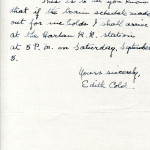 This is to let you know
that if the train schedule made
out for me holds I shall arrive
at the Harlan R.R. station
at 5 P.M. on Saturday, September
5.
Yours sincerely,
Edith Cold.